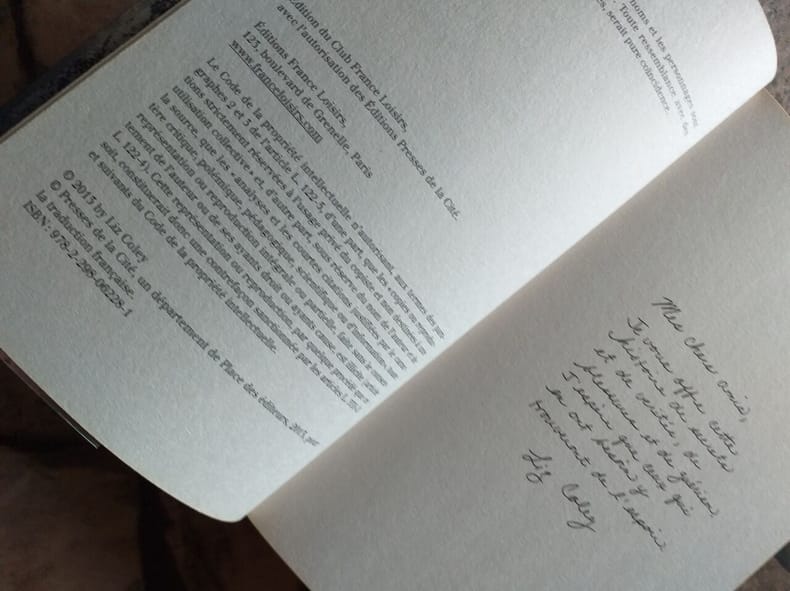 noms et les personnages sont
Toute ressemblance avec des
serait pure coïncidence.
Édition du Club France Loisirs,
avec l'autorisation des Éditions Presses de la Cité.
Éditions France Loisirs,
123, boulevard de Grenelle, Paris
www.franceloisirs.com
Le Code de la propriété intellectuelle n'autorisant, aux termes des para-
graphes 2 et 3 de l'article L. 122-5, d'une part, que les « copies ou reproduc-
tions strictement réservées à l'usage privé du copiste et non destinées à une
utilisation collective » et, d'autre part, sous réserve du nom de l'auteur et de
la source, que les « analyses et les courtes citations justifiées par le carac-
tère critique, polémique, pédagogique, scientifique ou d'information », toute
représentation ou reproduction intégrale ou partielle, faite sans le consen-
tement de l'auteur ou de ses ayants droit ou ayants cause, est illicite (article
L. 122-4). Cette représentation ou reproduction, par quelque procédé que ce
soit, constituerait donc une contrefaçon sanctionnée par les articles L.
et suivants du Code de la propriété intellectuelle.
© 2013 by Liz Coley
© Presses de la Cité, un département de Place des éditeurs, 2013, pour
la traduction française.
ISBN : 978-2-298-06228-1
Mes chers amis,
Je vous offre cette
histoire de secrets
et de vérités, de
blessures et de guérison.
J'espère que ceux qui
en ont besoin y
trouveront de l'espoir.
Liz Coley